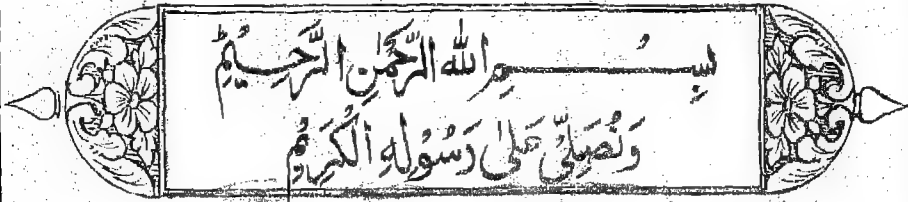 بِسْمِ اللهِ الرَّحْمٰنِ الرَّحِيْمِ
وَنُصَلِّىْ عَلٰى رَسُوْلِهِ الْكَرِيْمِ